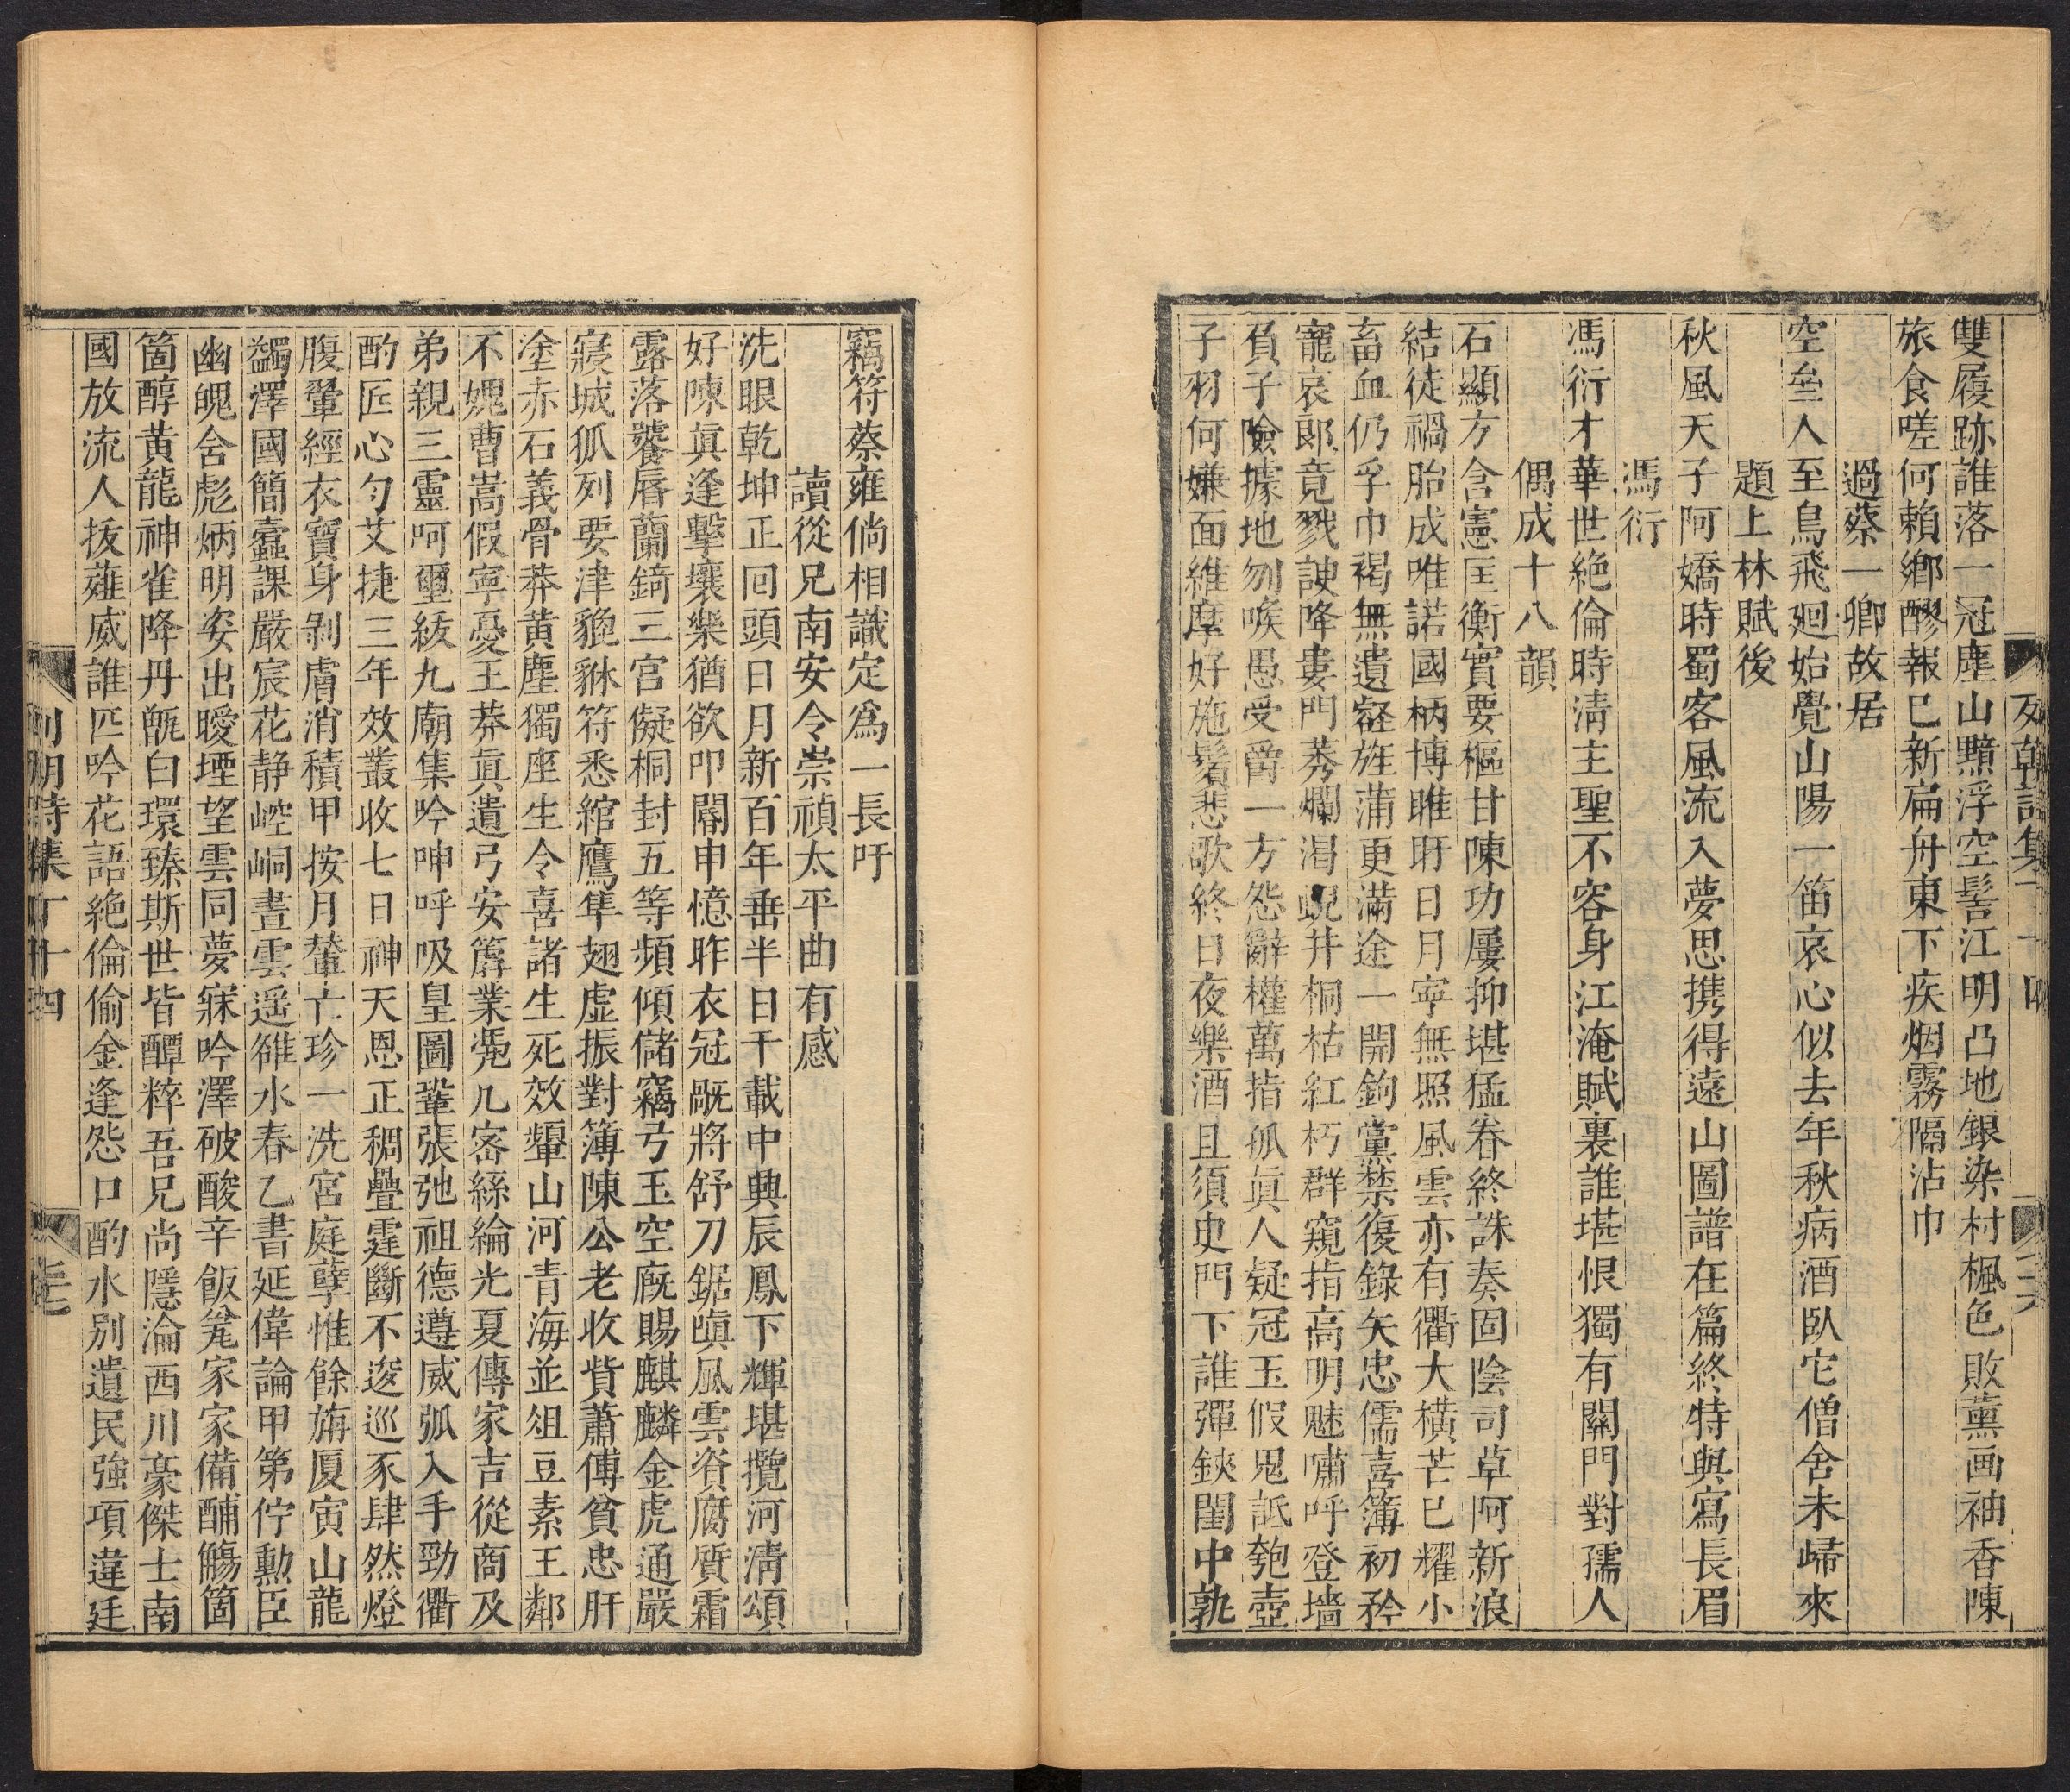 雙履跡誰落一冠塵山黯浮空髻江明凸地銀染村楓色敗薰画袖香陳
旅食嗟何賴鄉醪報已新扁舟東下疾烟霧隔沾巾
過蔡一卿故居
空壘人至鳥飛廻始覺山陽一笛哀心似去年秋病酒臥它僧舍未歸來
題上林賦後
秋風天子阿嬌時蜀客風流入夢思携得遠山圖譜在篇終特與寫長眉
馮衍
馮衍才華世絶倫時淸主聖不容身江淹賦裏誰堪恨獨有關門對孺人
偶成十八韻
石顯方含憲匡衡實要樞甘陳功屢抑堪猛眷終誅奏固陰司草阿新浪
結徒禍胎成唯諾國柄博睢盱日月寧無照風雲亦有衢大橫芒已耀小
畜血仍孚巾褐無遺壑旌蒲更滿途一開鉤黨禁復錄矢忠儒喜簿初矜
寵哀郞竟戮諛降婁門莠爛渴蜺井桐枯紅朽群窺指高明魅嘯呼登墻
負子險據地刎喉愚受爵一方怨辭權萬指孤眞人疑冠玉假鬼詆匏壺
子羽何嫌面維摩好施鬚悲歌終日夜樂酒且須臾門下誰彈鋏閨中孰
竊符蔡雍倘相識定爲一長吁
讀從兄南安令崇禎太平曲有感
洗眼乾坤正囘頭日月新百年垂半日千載中興辰鳳下輝堪攬河淸頌
好陳眞逢擊壤樂猶欲叩閽申憶昨衣冠厩將舒刀鋸嗔風雲資腐質霜
露落饕脣蘭錡三宮儗桐封五等頻傾儲竊弓玉空廐賜麒麟金虎通嚴
寢城狐列要津貔貅符悉綰鷹隼翅虛振對簿陳公老收貲蕭傅貧忠肝
塗赤石義骨莽黃塵獨座生令喜諸生死效顰山河青海並俎豆素王鄰
不媿曹嵩假寧憂王莽眞遺弓安簴業凴几宻絲綸光夏傳家吉從商及
弟親三靈呵璽紱九廟集吟呻呼吸皇圖鞏張弛祖德遵威弧入手勁衢
酌匠心勻艾捷三年效叢收七日神天恩正稠疊霆斷不逡巡豕肆然燈
腹翬經衣寶身剝膚消積甲按月輦亡珍一洗宮庭孽惟餘旃厦寅山龍
蠲澤國簡蠹課嚴宸花静崆峒晝雲遥雒水春乙書延偉論甲第佇勳臣
幽魄舍彪炳明姿出曖堙望雲同夢寐吟澤破酸辛飯筦家家備酺觴箇
箇醇黃龍神雀降丹甑白環臻斯世皆醰粹吾兄尚隱淪西川豪傑士南
國放流人拔薤威誰匹吟花語絶倫偷金逢怨口酌水別遺民強項違廷